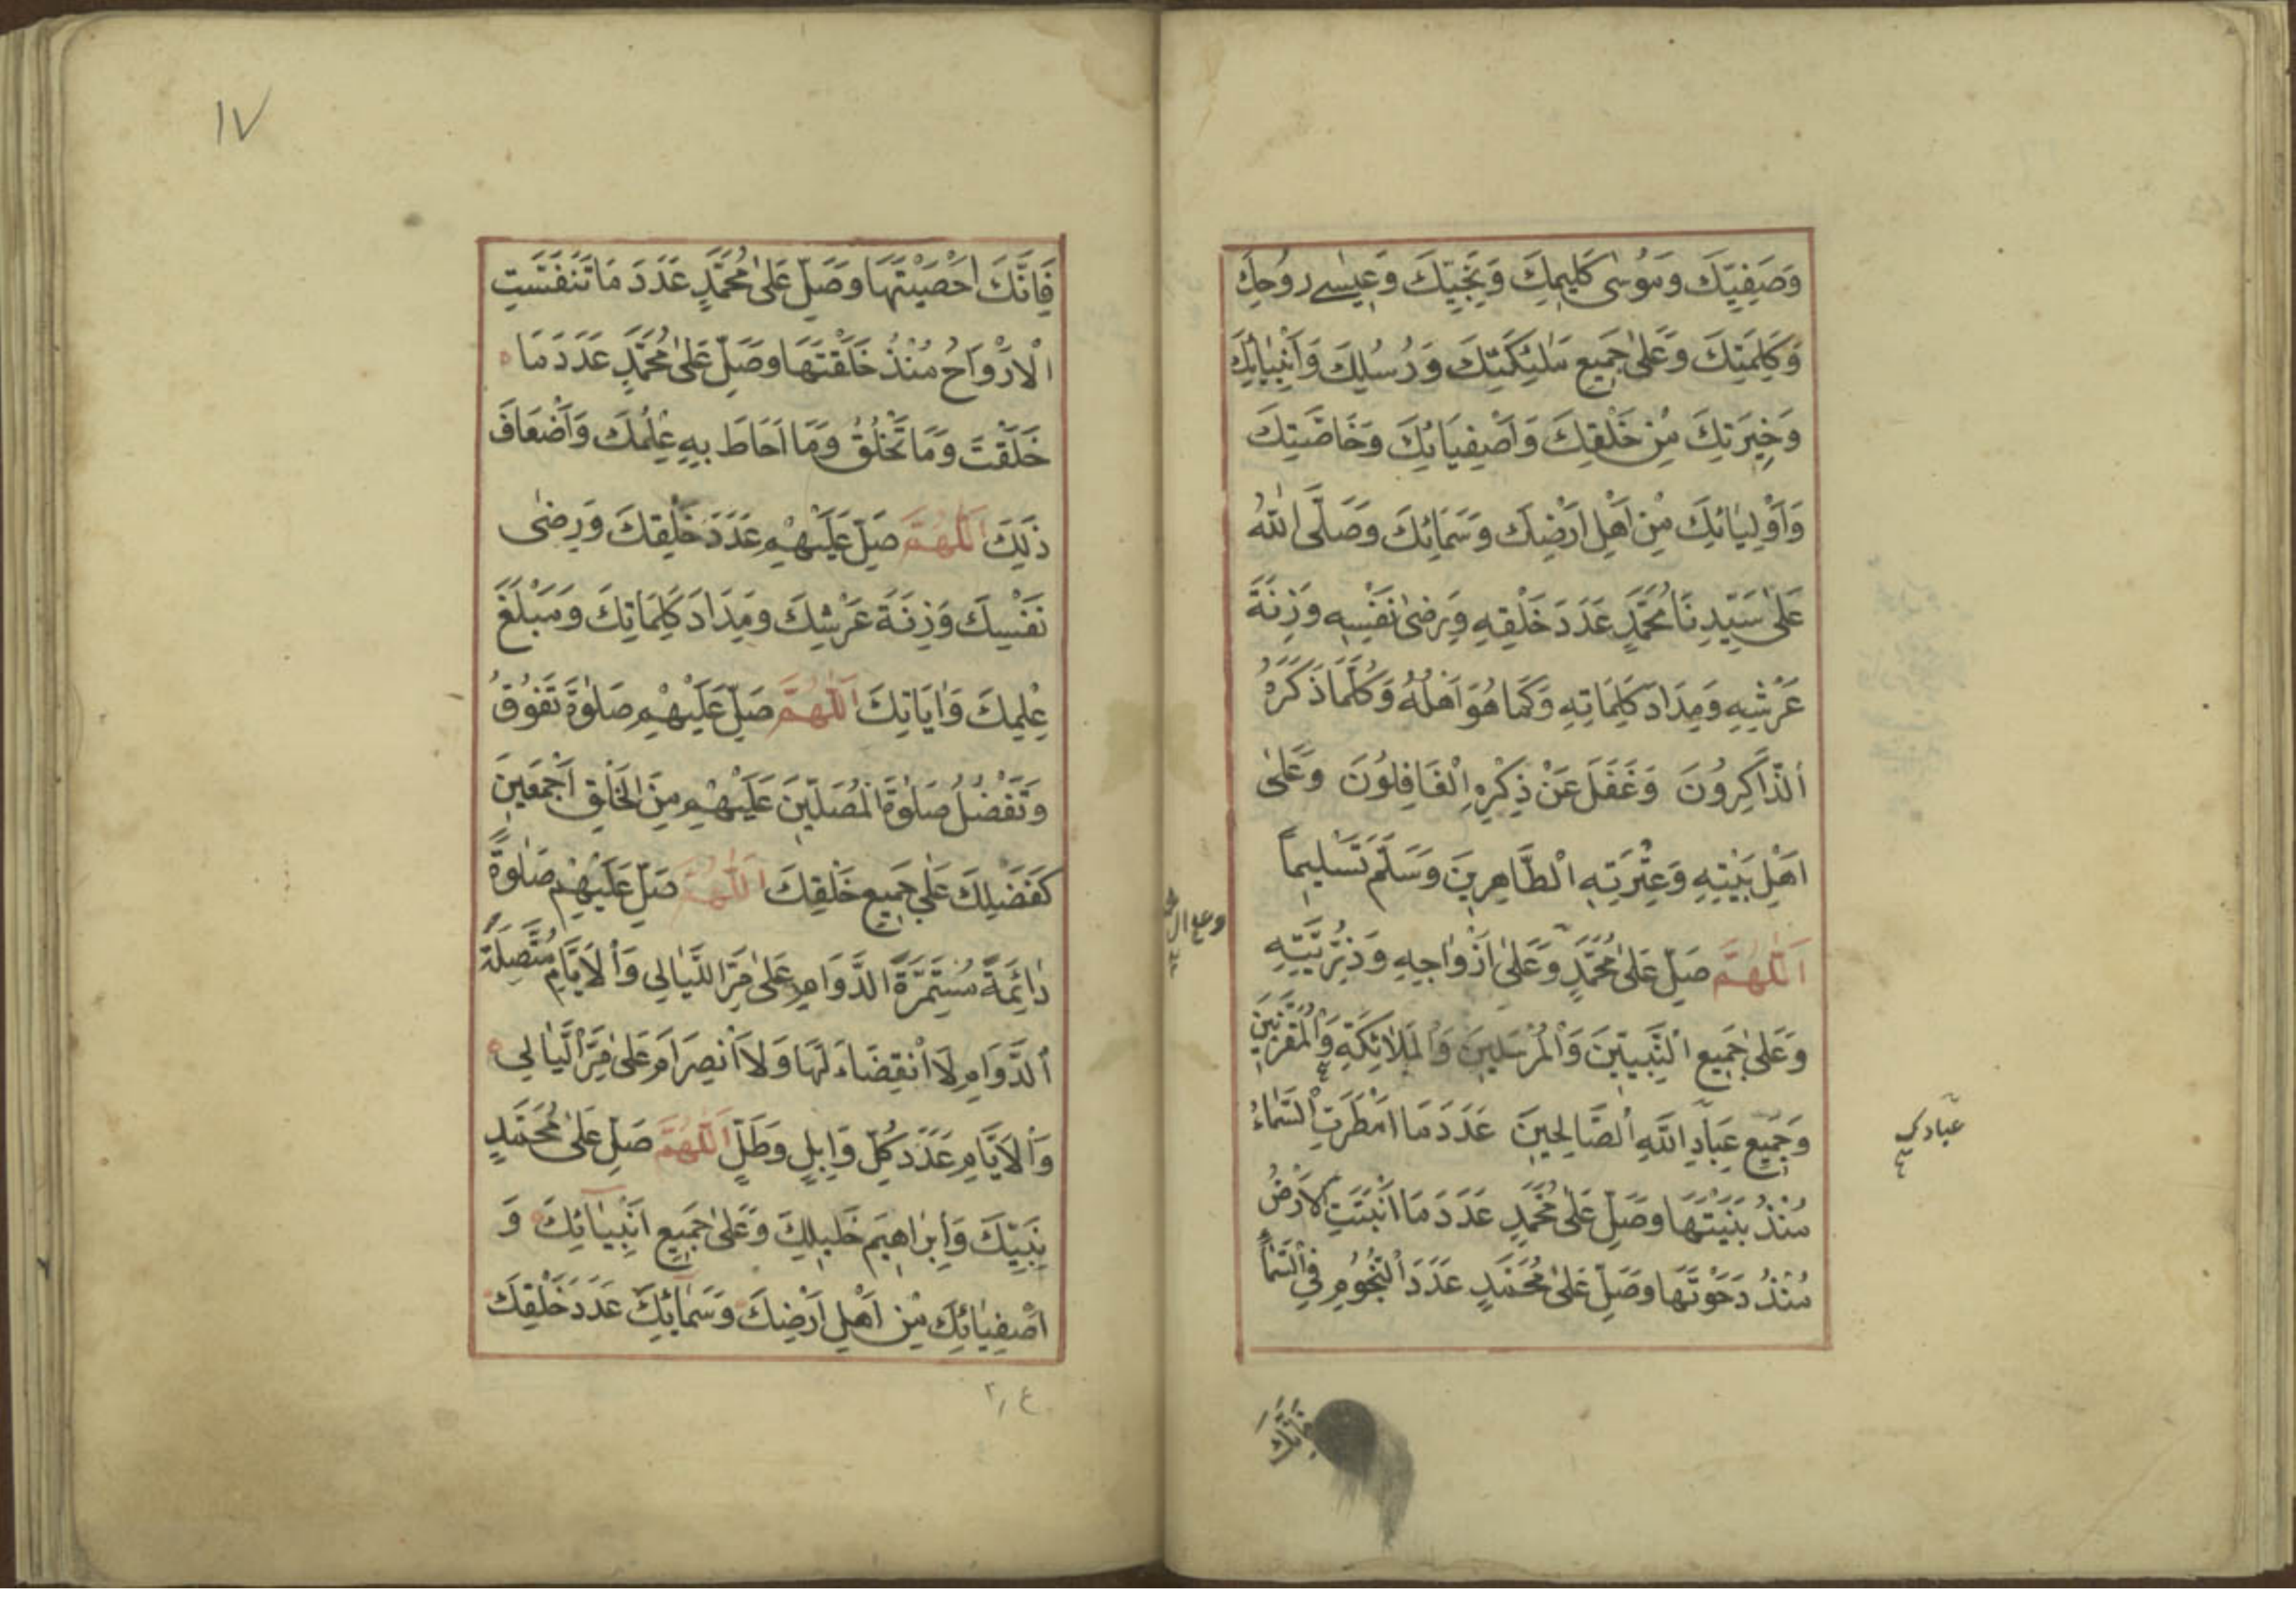 وَصَفِيِّكَ وَمُوْسٰى كَلِيمِكَ وَنَجِيِّكَ وَعِيسٰے رُوحِكَ
وَكَلِمَتِكَ وَعَلىٰ جَمِيعِ مَلٰئِكَتِكَ وَرُسُلِكَ وَاَنْبِيٰائِكَ
وَخِيَرَتِكَ مِنْ خَلْقِكَ وَاَصْفِيَائِكَ وَخَاصَّتِكَ
وَاَوْلِيٰائِكَ مِنْ اَهْلِ اَرْضِكَ وَسَمَائِكَ وَصَلَّى اللّٰهُ
عَلىٰ سَيِّدِنَا مُحَمَّدٍ عَدَدَ خَلْقِهِ وَرِضىٰ نَفْسِهِ وَزِنَةَ
عَرْشِهِ وَمِدَادَ كَلِمَاتِهِ وَكَمَا هُوَ اَهْلُهُ وَكُلَّمَا ذَكَرَهُ
اَلذَّاكِرُونَ وَغَفَلَ عَنْ ذِكْرِهِ الْغَافِلُونَ وَعَلىٰ
اَهْلِ بَيْتِهِ وَعِتْرَتِهِ الْطَّاهِرِينَ وَسَلَّمَ تَسْلِيماً
اَللّٰهُمَّ صَلِّ عَلىٰ مُحَمَّدٍ وَعَلىٰ اَزْوَاجِهِ وَذُرِّيَّتِهِ
وَعَلىٰ جَمِيعِ الْنَّبِيِّينَ وَالْمُرْسَلِينَ وَالْمَلَائِكَةِ وَالْمُقَرَّبِينَ
وَجَمِيعِ عِبَادِ اللّٰهِ الْصَّالِحِينَ عَدَدَ مَا اَمْطَرَتِ الْسَّمَاءُ
مُنْذُ بَنَيْتَهَا وَصَلِّ عَلىٰ مُحَمَّدٍ عَدَدَ مَا اَنْبَتَتِ الْاَرْضُ
مُنْذُ دَحَوْتَهَا وَصَلِّ عَلىٰ مُحَمَّدٍ عَدَدَ الْنُّجُومِ فِي الْسَّمَاءِ
عبادك
فَاِنَّكَ
١٧
فَاِنَّكَ اَحْصَيْتَهَا وَصَلِّ عَلىٰ مُحَمَّدٍ عَدَدَ مَا تَنَفَّسَتِ
الْاَرْوَاحُ مُنْذُ خَلَقْتَهَا وَصَلِّ عَلىٰ مُحَمَّدٍ عَدَدَ مَا
خَلَقْتَ وَمَا تَخْلُقُ وَمَا اَحَاطَ بِهِ عِلْمُكَ وَاَضْعَافَ
ذٰلِكَ اَللّٰهُمَّ صَلِّ عَلَيْهِمْ عَدَدَ خَلْقِكَ وَرِضىٰ
نَفْسِكَ وَزِنَةَ عَرْشِكَ وَمِدَادَ كَلِمَاتِكَ وَمَبْلَغَ
عِلْمِكَ وَاٰيَاتِكَ اَللّٰهُمَّ صَلِّ عَلَيْهِمْ صَلٰوةً تَفُوْقُ
وَتَفْضُلُ صَلٰوةَ الْمُصَلِّينَ عَلَيْهِمْ مِنَ الْخَلْقِ اَجْمَعِينَ
كَفَضْلِكَ عَلٰى جَمِيعِ خَلْقِكَ اَللّٰهُمَّ صَلِّ عَلَيْهِمْ صَلٰوةً
دٰائِمَةً مُسْتَمِرَّةَ الدَّوَامِ عَلىٰ مَرِّ اللَّيَالِي وَالْاَيَّامِ مُتَّصِلَةَ
اَلدَّوَامِ لَا اَنْقِضَاءَ لَهَا وَلَا اَنْصِرَامَ عَلىٰ مَرِّ الَّيٰالِي
وَالْاَيَّامِ عَدَدَ كُلِّ وَابِلٍ وَطَلٍّ اَللّٰهُمَّ صَلِّ عَلىٰ مُحَمَّدٍ
نَبِيِّكَ وَاِبْرَاهِيمَ خَلِيلِكَ وَعَلىٰ جَمِيعِ اَنْبِيٰائِكَ وَ
اَصْفِيٰائِكَ مِنْ اَهْلِ اَرْضِكَ وَسَمٰائِكَ عَدَدَ خَلْقِكَ